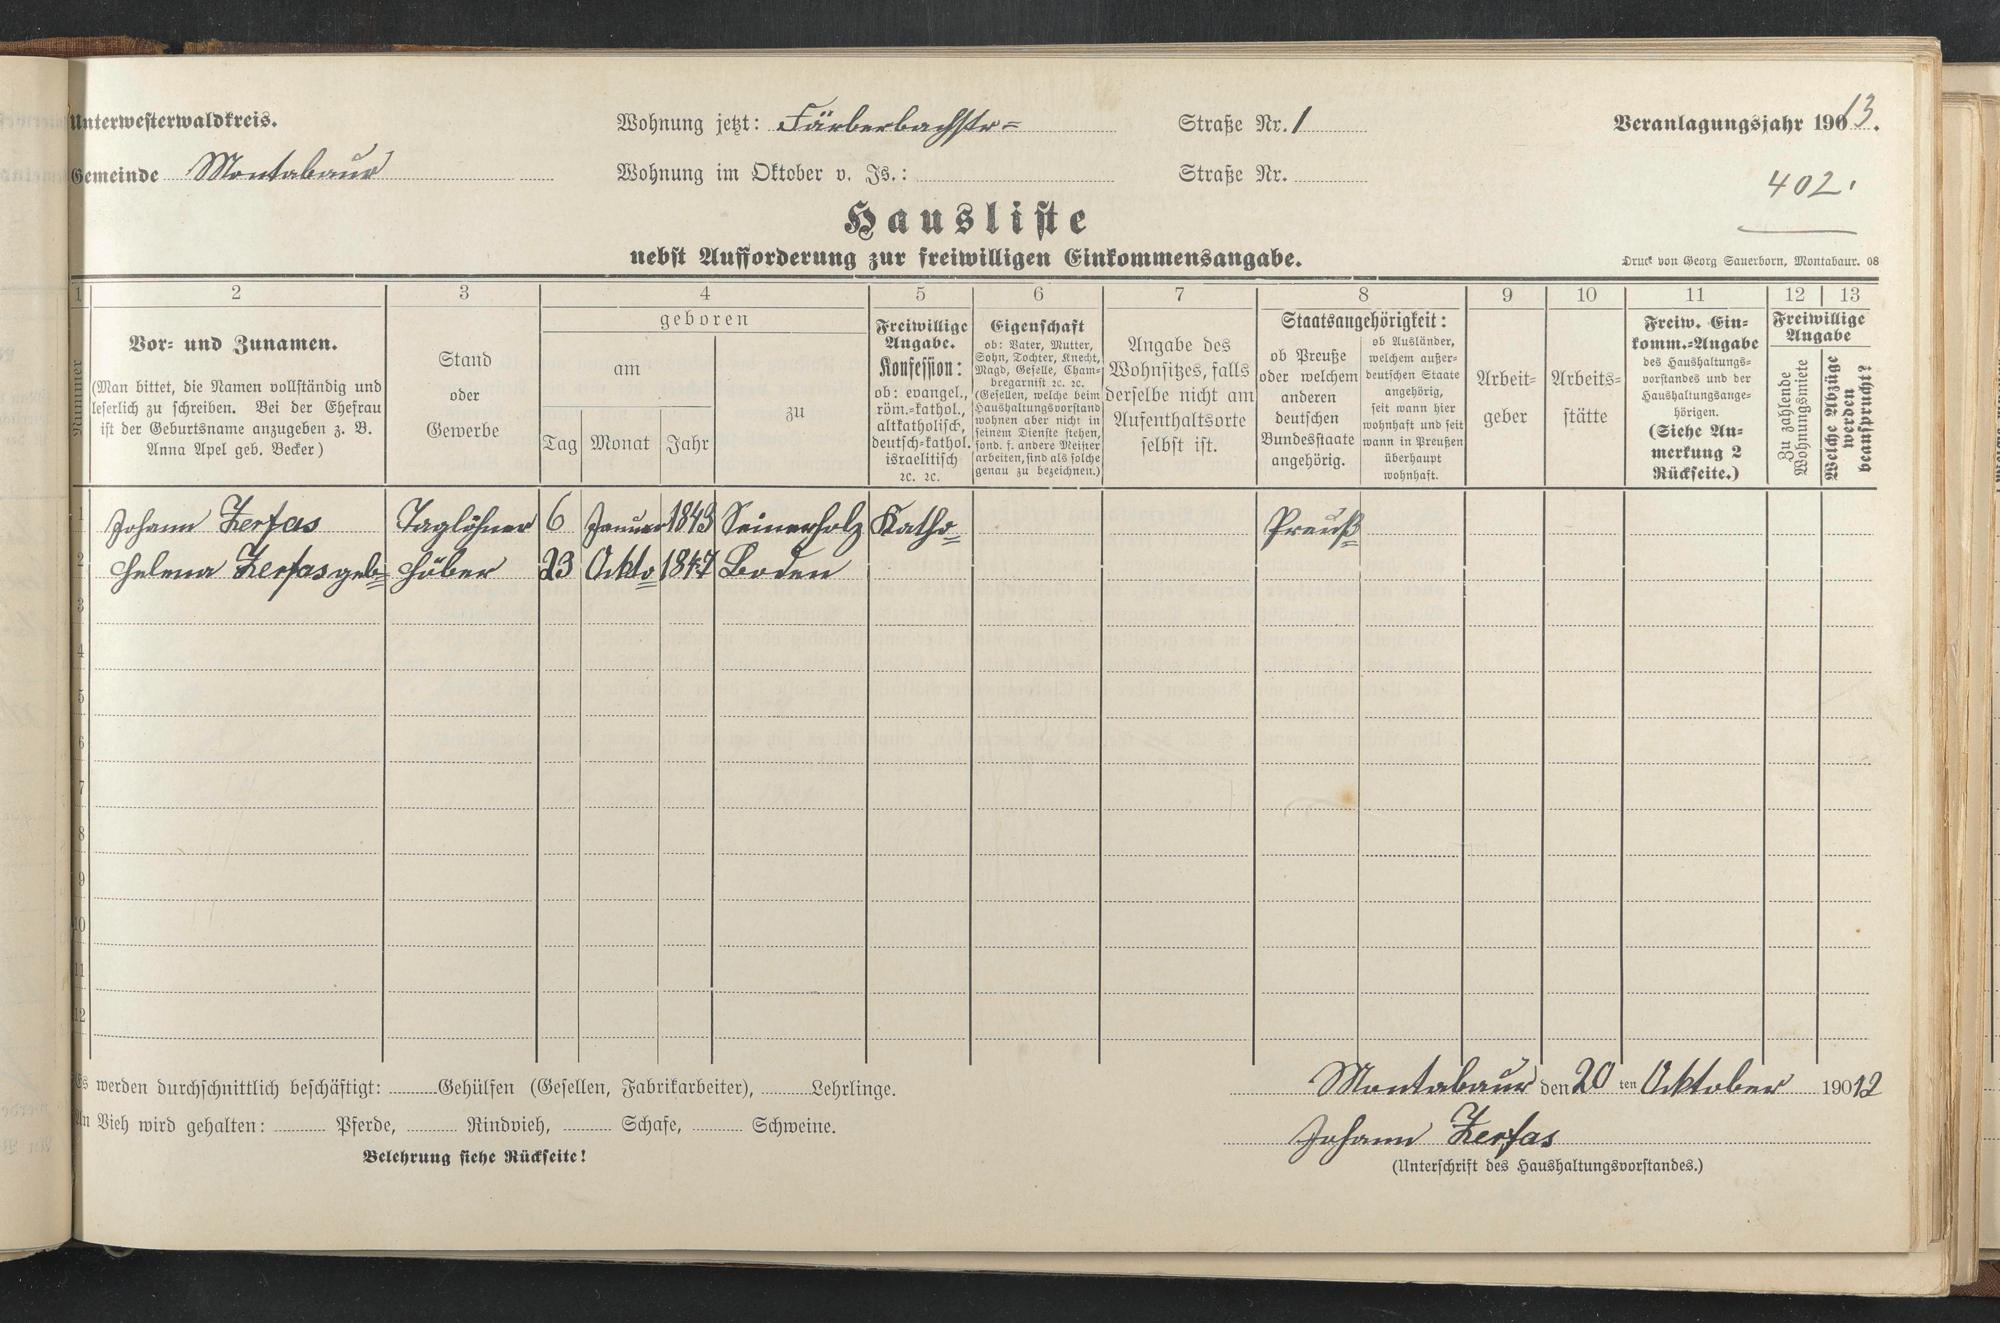 Unterwesterwaldkreis.
Wohnung jetzt: Färberbachstr= Straße Nr. 1
Veranlagungsjahr 19013.
Gemeinde Montabaur
Wohnung im Oktober v. Js.: Straße Nr.
402.
Hausliste
nebst Aufforderung zur freiwilligen Einkommensangabe.
Druck von Georg Sauerborn, Montabaur. 08
1 2 3 4 5 6 7 8 9 10 11 12 13
Nummer
Vor- und Zunamen.
(Man bittet, die Namen vollständig und
leserlich zu schreiben. Bei der Ehefrau
ist der Geburtsname anzugeben z. B.
Anna Apel geb. Becker)
Stand
oder
Gewerbe
geboren
am
Tag Monat Jahr
zu
Freiwillige
Angabe.
Konfession:
ob: evangel.,
röm.-kathol.,
altkatholisch,
deutsch-kathol.
israelitisch
ꝛc. ꝛc.
Eigenschaft
ob: Vater, Mutter,
Sohn, Tochter, Knecht,
Magd, Geselle, Cham-
bregarnist ꝛc. ꝛc.
(Gesellen, welche beim
Haushaltungsvorstand
wohnen aber nicht in
seinem Dienste stehen,
sond. f. andere Meister
arbeiten, sind als solche
genau zu bezeichnen.)
Angabe des
Wohnsitzes, falls
derselbe nicht am
Aufenthaltsorte
selbst ist.
Staatsangehörigkeit:
ob Preuße
oder welchem
anderen
deutschen
Bundesstaate
angehörig.
ob Ausländer,
welchem außer-
deutschen Staate
angehörig,
seit wann hier
wohnhaft und seit
wann in Preußen
überhaupt
wohnhaft.
Arbeit-
geber
Arbeits-
stätte
Freiw. Ein-
komm.-Angabe
des Haushaltungs-
vorstandes und der
Haushaltungsange-
hörigen.
(Siehe An-
merkung 2
Rückseite.)
Freiwillige
Angabe
Zu zahlende
Wohnungsmiete
Welche Abzüge
werden
beansprucht?
1 Johann Zerfas Taglöhner 6 Januar 1843 Katho= Preuß=
2 Helena Zerfas geb= Höber 23 Okto= 1847 Boden
3
4
5
6
7
8
9
10
11
12
Es werden durchschnittlich beschäftigt: Gehülfen (Gesellen, Fabrikarbeiter), Lehrlinge.
Montabaur den 20 ten Oktober 19012
An Vieh wird gehalten: Pferde, Rindvieh, Schafe, Schweine.
Johann Zerfas
Belehrung siehe Rückseite!
(Unterschrift des Haushaltungsvorstandes.)